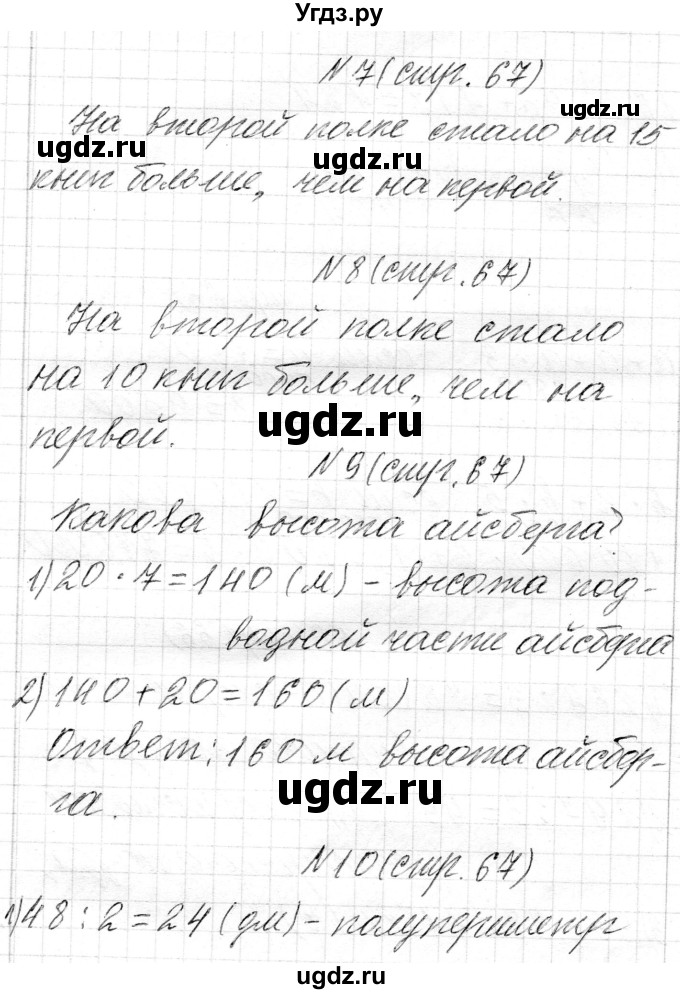 Угдз.ру
N7(стр. 67)
На второй полке стало на 15
книг больше, чем на первой.
N8(стр. 67)
На второй полке стало
на 10 книг больше, чем на
первой.
N9(стр. 67)
Какова высота айсберга?
1) 20 · 7 = 140 (м) - высота под-
водной части айсберга
2) 140 + 20 = 160 (м)
Ответ: 160 м высота айсбер-
га.
N10(стр. 67)
1) 48 : 2 = 24 (дм) - полупериметр
ugdz.ru
ugdz.ru
ugdz.ru
ugdz.ru
ugdz.ru
ugdz.ru
ugdz.ru
ugdz.ru